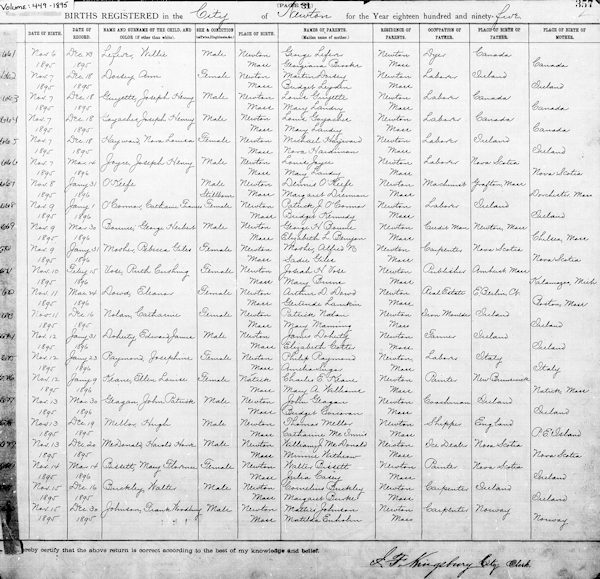 Volume: 449 - 1895
(PAGE) 31
357
BIRTHS REGISTERED in the City of Newton for the Year eighteen hundred and ninety-five
DATE OF BIRTH. DATE OF RECORD. NAME AND SURNAME OF THE CHILD, AND COLOR (if other than white). SEX & CONDITION PLACE OF BIRTH. NAMES OF PARENTS. (Maiden name of mother) RESIDENCE OF PARENTS. OCCUPATION OF FATHER. PLACE OF BIRTH OF FATHER. PLACE OF BIRTH OF MOTHER.
Nov 6 Willie Male Newton George Newton Dyer Canada
1895 1895 Mass Georgiana Mass Canada
Nov. 7 Dec 18 Ann Female Newton Martin Newton Labor Ireland
1895 1895 Mass Bridget Mass Ireland
Nov. 7 Dec. 18 Guyette Joseph Henry Male Newton Louis Guyette Newton Labor Canada
1895 1895 Mass Mary Landry Mass Canada
Nov. 7 Dec. 18 Joseph Henry Male Newton Louis Newton Labor Canada
1895 1895 Mass Mary Landry Mass Canada
Nov. 7 Dec. 18 Hayward, Nora Louisa Female Newton Michael Hayward Newton Labor Ireland
1895 1895 Mass Nora Mass Ireland
Nov. 7 Mar 14 Joyce Joseph Henry Male Newton Louis Joyce Newton Labor Nova Scotia
1895 1896 Mass Mary Landry Mass Nova Scotia
Nov. 8 Jany 31 O'Keefe Male Newton Dennis O'Keefe Newton Machinist Grafton, Mass
1895 1896 Stillborn Mass Margaret Mass Dorchester Mass
Nov. 9 Jany 1 O'Connor, Catharine Female Newton Patrick J. O'Connor Newton Labor Ireland
1895 1896 Mass Bridget Kennedy Mass Ireland
Nov. 9 Mar 30 Bourne, George Herbert Male Newton George H. Bourne Newton Newton, Mass
1895 1896 Mass Elizabeth L. Mass Chelsea, Mass
Nov. 9 Jany 31 Rebecca Giles Female Newton Alfred B. Newton Carpenter Nova Scotia
1895 1896 Mass Sadie Giles Mass Nova Scotia
Nov. 10 Feby 15 Vose, Ruth Cushing Female Newton Josiah H. Vose Newton Publisher Amherst Mass
1895 1896 Mass Mary Mass Kalamazoo, Mich
Nov. 11 Mar 24 Dowd, Eleanor Female Newton Arthur D. Dowd Newton Real Estate E. Berlin, Ct.
1895 1896 Mass Gertrude Mass Boston, Mass
Nov. 11 Dec 16 Nolan, Catharine Female Newton Patrick Nolan Newton Iron Moulder Ireland
1895 1895 Mass Mary Manning Mass Ireland
Nov. 12 Jany 31 Doherty, Edward James Male Newton James Doherty Newton Ireland
1895 1896 Mass Elizabeth Mass Ireland
Nov. 12 Jany 23 Raymond, Josephine Female Newton Philip Raymond Newton Labor Italy
1895 1896 Mass Mass Italy
Nov. 12 Jany 9 Keane, Ellen Louise Female Natick Charles E. Keane Newton Painter New Brunswick
1895 1896 Mass Mary A. Williams Mass Natick, Mass
Nov. 13 Mar 30 Geagan, John Patrick Male Newton John Geagan Newton Coachman Ireland
1895 1896 Mass Bridget Mass Ireland
Nov. 13 Dec. 19 Mellor, Hugh Male Newton Thomas Mellor Newton Shipper England
1895 1895 Mass Catharine Mc Innis Mass P.E. Island
Nov. 13 Dec. 20 McDonald, Harold Male Newton William J. McDonald Newton Ice Dealer Nova Scotia
1895 1895 Mass Minnie Mass Nova Scotia
Nov. 14 Mar 14 Bissett, Mary Florence Female Newton Walter Bissett Newton Painter Nova Scotia
1895 1896 Mass Julia Casey Mass Ireland
Nov. 15 Dec. 16 Buckley, Walter Male Newton Cornelius Buckley Newton Carpenter Ireland
1895 1895 Mass Margaret Burke Mass Ireland
Nov. 15 Dec. 30 Johnson, Frank Male Newton Johnson Newton Carpenter Norway
1895 1895 Mass Matilda Mass Norway
hereby certify that the above return is correct according to the best of my knowledge and belief.
Kingsbury City Clerk